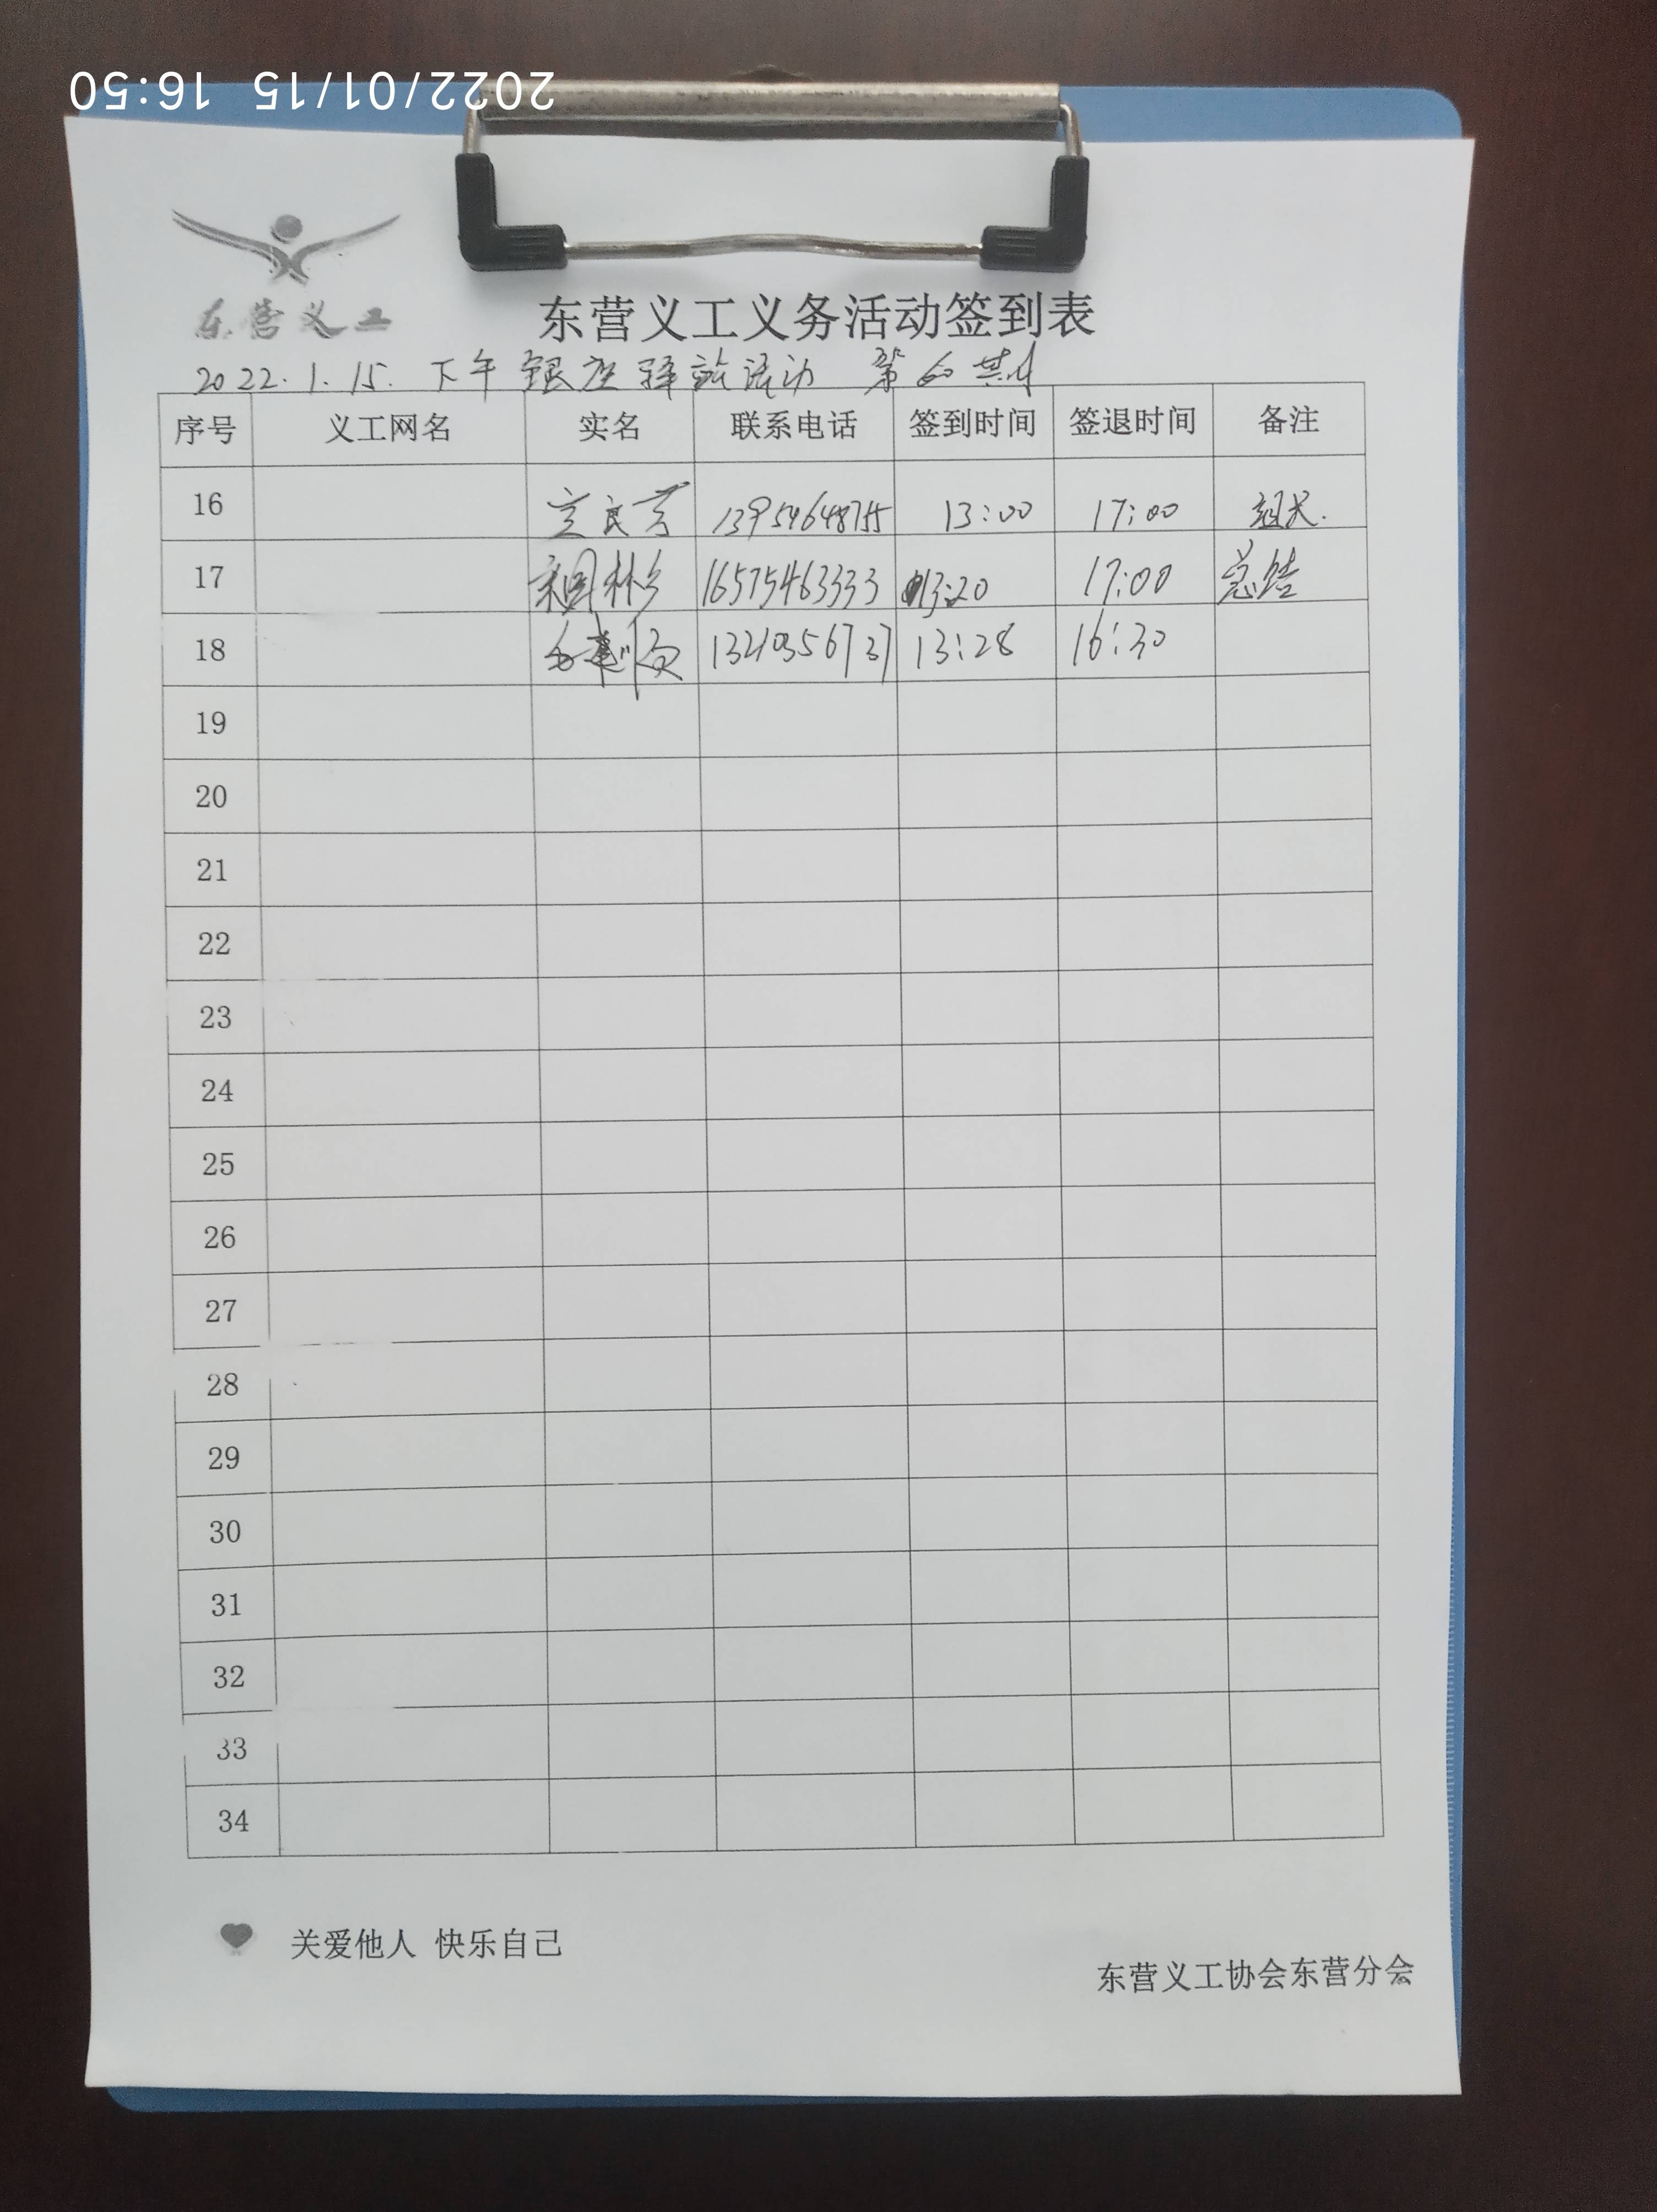 2022/01/15 16:50
东营义工
东营义工义务活动签到表
2022.1.15. 下午银座驿站活动 第60期
序号 义工网名 实名 联系电话 签到时间 签退时间 备注
16 13954648755 13:00 17:00 组长.
17 16575463333 13:20 17:00 总结
18 13:28 16:30
19
20
21
22
23
24
25
26
27
28
29
30
31
32
33
34
关爱他人 快乐自己
东营义工协会东营分会